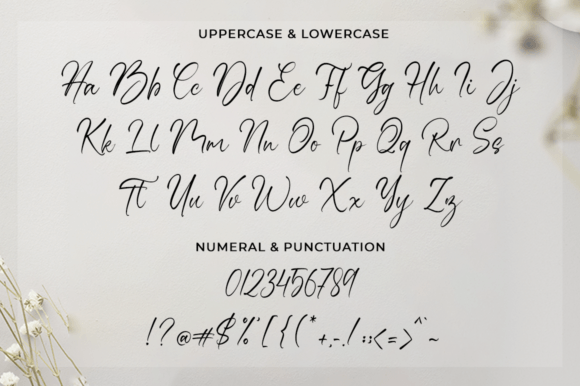 UPPERCASE & LOWERCASE
Aa Bb Cc Dd Ee Ff Gg Hh Ii Jj
Kk Ll Mm Nn Oo Pp Qq Rr Ss
Tt Uu Vv Ww Xx Yy Zz
NUMERAL & PUNCTUATION
0123456789
!?@#$%'[{(*+,-./:;<=>^`~